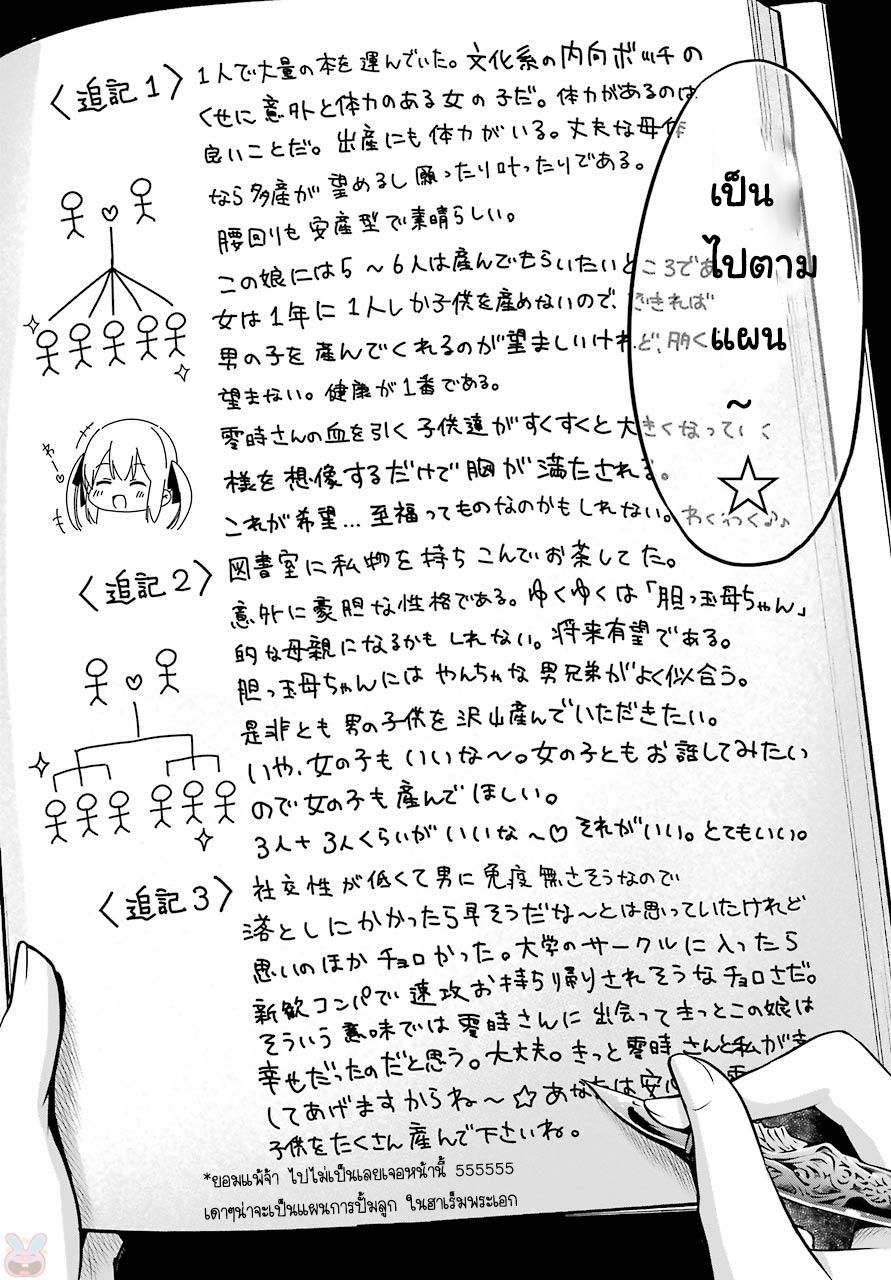 〈追記1〉
1人で大量の本を運んでいた。文化系の内向ボッチの
くせに意外と体力のある女の子だ。体力があるのは
良いことだ。出産にも体力がいる。丈夫な母体
なら多産が望めるし願ったり叶ったりである。
腰回りも安産型で素晴らしい。
この娘には5～6人は産んでもらいたいところであ
女は1年に1人しか子供を産めないので、できれば
男の子を産んでくれるのが望ましいけれど、多く
望まない。健康が1番である。
零時さんの血を引く子供達がすくすくと大きくなっていく
様を想像するだけで胸が満たされる。
これが希望…至福ってものなのかもしれない。わくわく♪♪
わー
เป็น
ไปตาม
แผน
~
☆
〈追記2〉
図書室に私物を持ちこんでお茶してた。
意外に豪胆な性格である。ゆくゆくは「胆っ玉母ちゃん」
的な母親になるかもしれない。将来有望である。
胆っ玉母ちゃんにはやんちゃな男兄弟がよく似合う。
是非とも男の子供を沢山産んでいただきたい。
いや、女の子もいいな～。女の子ともお話してみたい
ので女の子も産んでほしい。
3人+3人くらいがいいな～♡それがいい。とてもいい。
〈追記3〉
社交性が低くて男に免疫無さそうなので
落としにかかったら早そうだな～とは思っていたけれど
思いのほかチョロかった。大学のサークルに入ったら
新歓コンパで速攻お持ち帰りされそうなチョロさだ。
そういう意味では零時さんに出会ってきっとこの娘は
幸せだったのだと思う。大丈夫。きっと零時さんと私が
してあげますからね～☆あなたは安心
子供をたくさん産んで下さいね。
*ยอมแพ้จ้า ไปไม่เป็นเลยเจอหน้านี้ 555555
เดาๆน่าจะเป็นแผนการปั๊มลูก ในฮาเร็มพระเอก